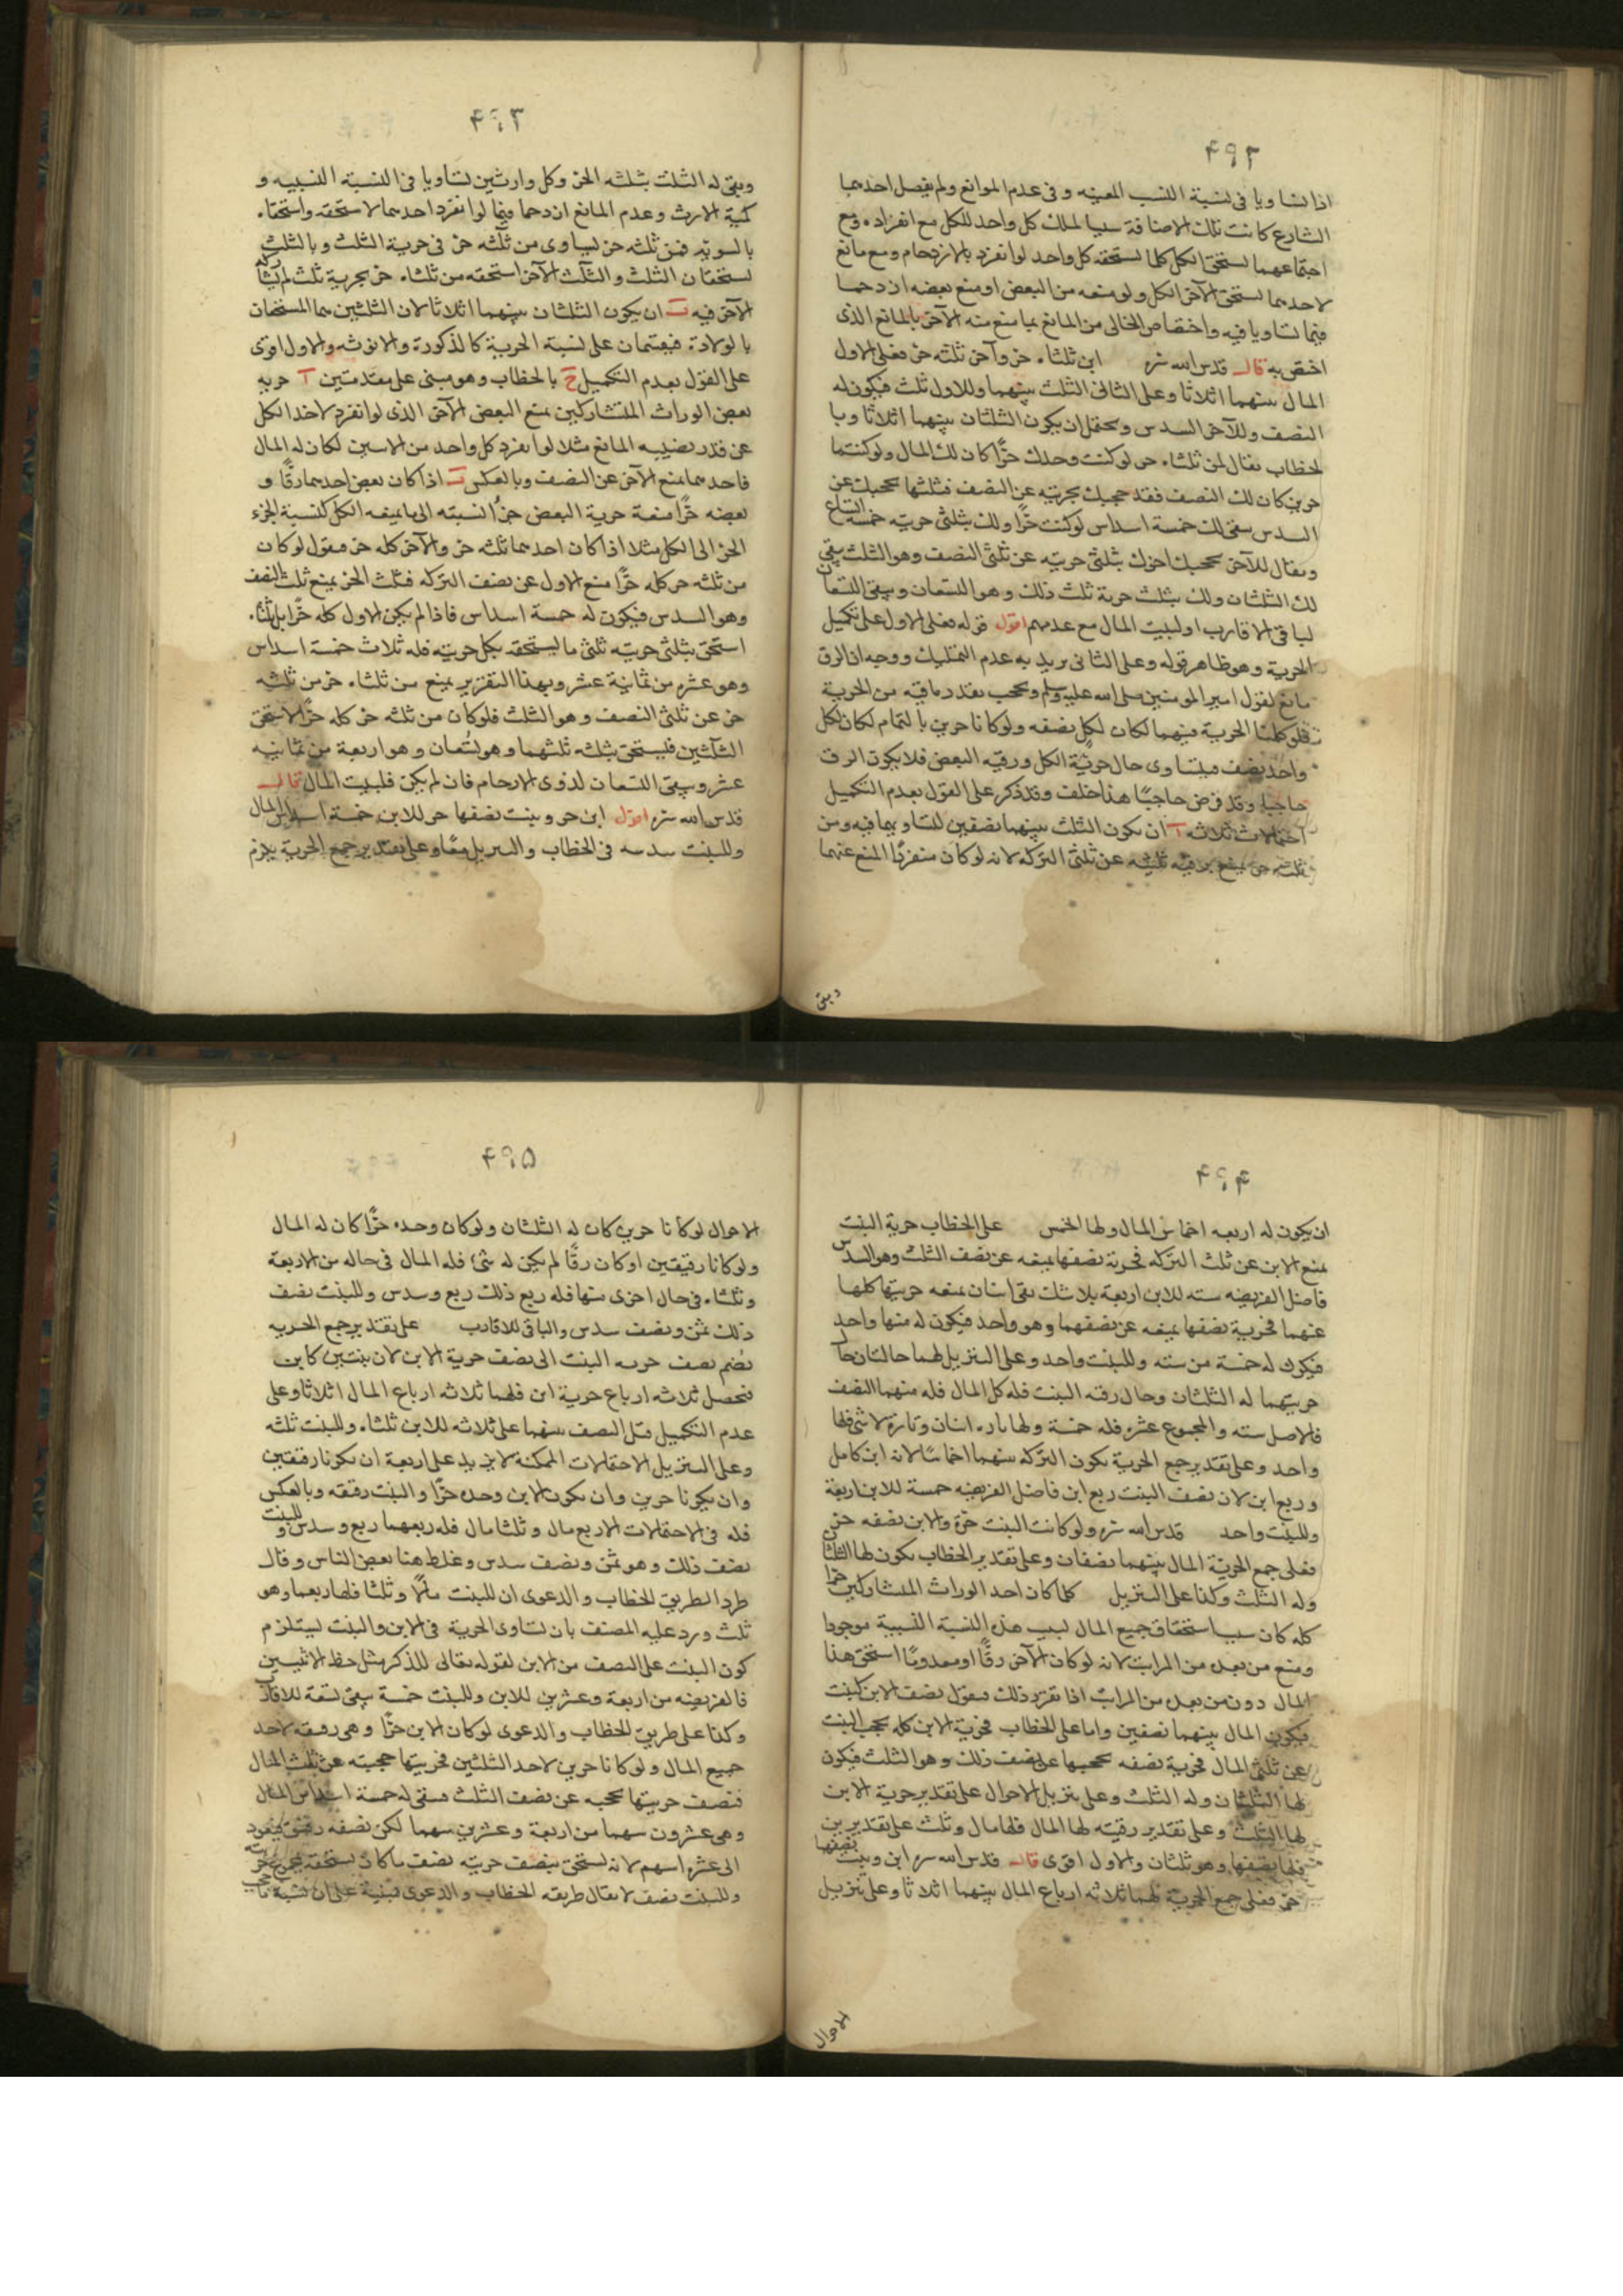 ۴۹۲
اذا تساويا فى نسبة النسب المعينه و فى عدم الموانع ولم يفصل احدهما
الشارع كانت تلك الاضافة سببا لملك كل واحد للكل مع انفراده ومع
اجتماعهما يستحق الكل كلما يستحقه كل واحد لو انفرد بالازدحام ومع مانع
لاحدهما يستحق الآخر الكل ولو منعه من البعض او منع بعضه ازدحما
فيما تساويا فيه واختصاص الخالى من المانع بما منع منه الآخر بالمانع الذى
اختص به قال قدس الله سره ابن ثلثاه حر وآخر ثلثه حر فعلى الاول
المال بينهما اثلاثا وعلى الثانى الثلث بينهما وللاول ثلث فيكون له
النصف وللآخر السدس ويحتمل ان يكون الثلثان بينهما اثلاثا وبا
لخطاب يقال لمن ثلثاه حر لو كنت وحدك حرًّا كان لك المال ولو كنتما
حرين كان لك النصف فقد حجبك بحريته عن النصف فثلثها يحجبك عن
السدس يبقى لك خمسة اسداس لو كنت حرًّا ولك بثلثى حريته خمسة اتساع
ويقال للآخر يحجبك اخوك بثلثى حريته عن ثلثى النصف وهو الثلث يبقى
لك الثلثان ولك بثلث حرية ثلث ذلك وهو التسعان ويبقى التسعان
لباقى الاقارب او لبيت المال مع عدمهم اقول قوله فعلى الاول على تكميل
الحرية وهو ظاهر قوله وعلى الثانى يريد به عدم التمليك ووجه ان الرق
مانع لقول امير المومنين صلى الله عليه وسلم ويحجب بقدر ما فيه من الحرية
فلو كملنا الحرية فيهما لكان لكل نصفه ولو كانا حرين بالتمام لكان لكل
واحد نصف فيتساوى حال حرية الكل ورقيه البعض فلا يكون الرق
حاجبا وقد فرض حاجبًا هذا خلف وقد ذكر على القول بعدم التكميل
احتمالات ثلاثه آ ان يكون الثلث بينهما نصفين لتساويهما فيه ومن
ثلثه حر يمنع برقيه ثلثيه عن ثلثى التركه لانه لو كان منفردًا لمنع عنهما
وبقى
۴۹۳
وبقى له الثلث بثلثه الحر وكل وارثين تساويا فى النسبة النسبيه و
كمية الارث وعدم المانع ازدحما فيما لو انفرد احدهما لاستحقه واستحقاه
بالسويه فمن ثلثه حر يساوى من ثلثه حر فى حرية الثلث وبالثلث
يستحقان الثلث والثلث الآخر استحقه من ثلثاه حر بحرية ثلث لم يشاركه
الآخر فيه ب ان يكون الثلثان بينهما اثلاثا لان الثلثين هما المستحقان
بالولادة فيقتسمان على نسبة الحرية كالذكورة والانوثه والاول اقوى
على القول بعدم التكميل ج بالخطاب وهو مبنى على مقدمتين آ حريه
بعض الوراث المتشاركين يمنع البعض الآخر الذى لو انفرد لاخذ الكل
عن قدر نصيبه المانع مثلا لو انفرد كل واحد من الاسين لكان له المال
فاحدهما يمنع الآخر عن النصف وبالعكس ب اذا كان بعض احدهما رقًّا و
بعضه حرًّا منعة حرية البعض جزءًا نسبته الى ما يمنعه الكل كنسبة الجزء
الحر الى الكل مثلا اذا كان احدهما ثلثه حر والآخر كله حر فيقول لو كان
من ثلثه حر كله حرًّا منع الاول عن نصف التركه فثلث الحر يمنع ثلث النصف
وهو السدس فيكون له خمسة اسداس فاذا لم يكن الاول كله حرًّا بل ثلثاه
استحق بثلثى حريته ثلثى ما يستحقه بكل حريته فله ثلاث خمسة اسداس
وهو عشره من ثمانية عشر وبهذا التقرير يمنع من ثلثاه حر من ثلثه
حر عن ثلثى النصف وهو الثلث فلو كان من ثلثه حر كله حرًّا لاستحق
الثلثين فيستحق بثلثه ثلثهما وهو تسعان وهو اربعة من ثمانيه
عشر ويبقى التسعان لذوى الارحام فان لم يكن فلبيت المال قال
قدس الله سره اقول ابن حر وبنت نصفها حر للابن خمسة اسداس المال
وللبنت سدسه فى الخطاب والتنزيل معًا وعلى تقدير جمع الحرية يلزم
۴۹۴
ان يكون له اربعه اخماس المال ولها الخمس على الخطاب حرية البنت
يمنع الابن عن ثلث التركه فحرية نصفها يمنعه عن نصف الثلث وهو السدس
فاصل الفريضه سته للابن اربعة بلا شك بقى اثنان يمنعه حريتها كلها
عنهما فحرية نصفها يمنعه عن نصفهما وهو واحد فيكون له منها واحد
فيكون له خمسة من سته وللبنت واحد وعلى التنزيل لهما حالتان حال
حريتهما له الثلثان وحال رقيه البنت فله كل المال فله منهما النصف
فالاصل سته والمجموع عشره فله خمسة ولها تاره اثنان وتارة لا شى فلها
واحد وعلى تقدير جمع الحرية يكون التركه بينهما اخماسًا لانه ابن كامل
وربع ابن لان نصف البنت ربع ابن فاصل الفريضه خمسة للابن اربعة
وللبنت واحد قدس الله سره ولو كانت البنت حرة والابن نصفه حر
فعلى جمع الحرية المال بينهما نصفان وعلى تقدير الخطاب يكون لها الثلثان
وله الثلث وكذا على التنزيل كلما كان احد الوراث المتشاركين حرًّا
كله كان سببا استحقاق جميع المال لسبب هذه النسبة النسبية موجودا
ومنع من بعده من المراتب لانه لو كان الآخر رقًّا او معدومًا استحق هذا
المال دون من بعده من المراتب اذا تقرر ذلك فيقول نصف الابن كبنت
فيكون المال بينهما نصفين واما على الخطاب فحرية الابن كله يحجب البنت
عن ثلثى المال فحرية نصفه يحجبها عن نصف ذلك وهو الثلث فيكون
لها الثلثان وله الثلث وعلى تنزيل الاحوال على تقدير حرية الابن
لها الثلث وعلى تقدير رقيته لها المال فلها مال وثلث على تقديرين
فلها نصفها وهو ثلثان والاول اقوى قال قدس الله سره ابن وبنت نصفهما
حر فعلى جمع الحرية لهما ثلاثه ارباع المال بينهما اثلاثا وعلى تنزيل
الاحوال
۴۹۵
الاحوال لو كانا حرين كان له الثلثان ولو كان وحده حرًّا كان له المال
ولو كانا رقيقين او كان رقًّا لم يكن له شئ فله المال فى حاله من الاربعة
وثلثاه فى حال اخرى منها فله ربع ذلك ربع وسدس وللبنت نصف
ذلك ثمن ونصف سدس والباقى للاقارب على تقدير جمع الحريه
يضم نصف حريه البنت الى نصف حرية الابن لان بنتين كابن
فتحصل ثلاثه ارباع حرية ابن فلهما ثلاثه ارباع المال اثلاثا وعلى
عدم التكميل قبل النصف بينهما على ثلاثه للابن ثلثاه وللبنت ثلثه
وعلى التنزيل الاحتمالات الممكنة لا يزيد على اربعة ان يكونا رقيقين
وان يكونا حرين وان يكون الابن وحده حرًّا والبنت رقيقه وبالعكس
فله فى الاحتمالات الاربع مال وثلثا مال فله ربعهما ربع وسدس وللبنت
نصف ذلك وهو ثمن ونصف سدس وغلط هنا بعض الناس وقال
طرد الطريق الخطاب والدعوى ان للبنت مالًا وثلثا فلها ربعهما وهو
ثلث ورد عليه المصنف بان تساوى الحرية فى الابن والبنت يستلزم
كون البنت على النصف من الابن لقوله تعالى للذكر مثل حظ الانثيين
فالفريضه من اربعة وعشرين للابن وللبنت خمسة يبقى تسعة للاقارب
وكذا على طريق الخطاب والدعوى لو كان الابن حرًّا وهى رقيقه لاخذ
جميع المال ولو كانا حرين لاخذ الثلثين فحريتها حجبته عن ثلث المال
فنصف حريتها يحجبه عن نصف الثلث فيبقى له خمسة اسداس المال
وهى عشرون سهما من اربعة وعشرين سهما لكن نصفه رقيق فيعود
الى عشرة اسهم لانه يستحق بنصف حريته نصف ما كان يستحقه بجميع حريته
وللبنت نصف لا يقال طريقه الخطاب والدعوى مبنية على ان نسبة